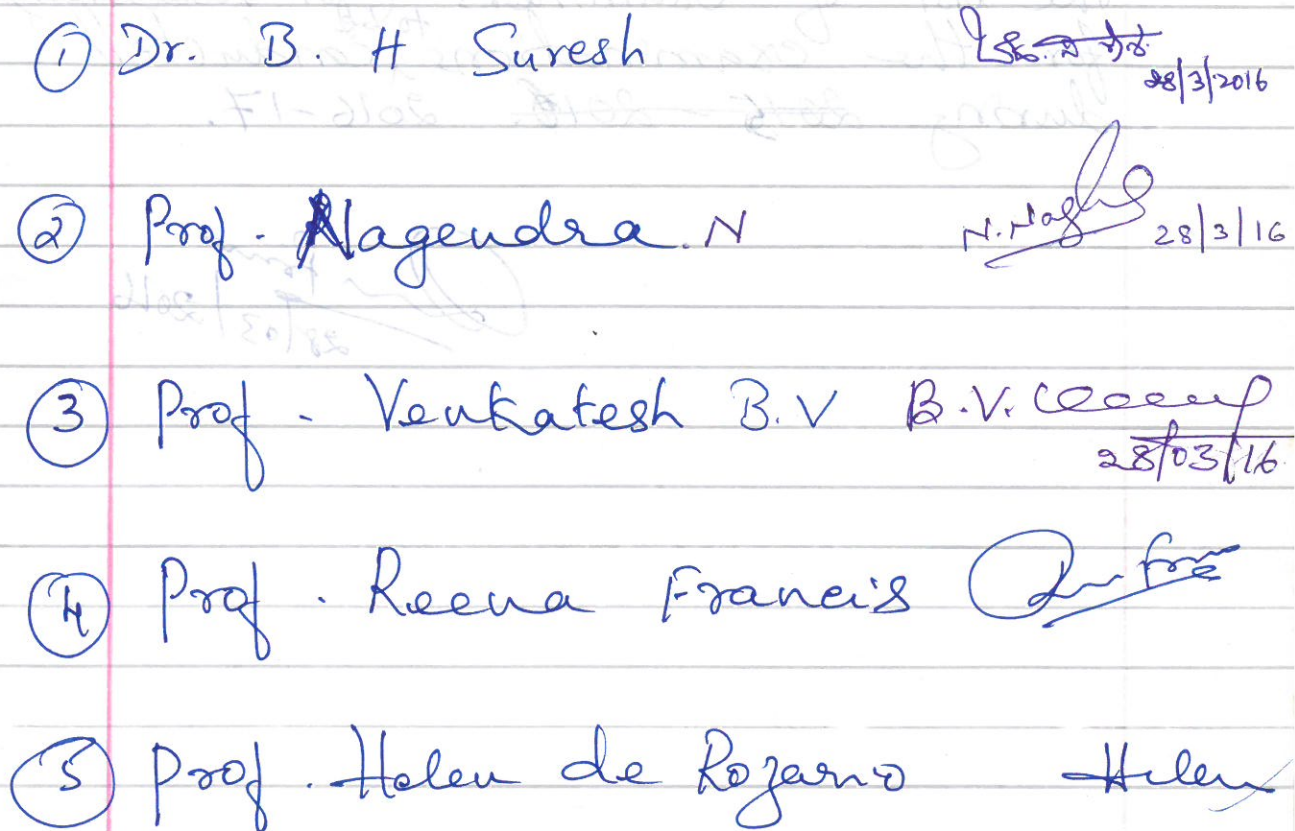 ① Dr. B. H Suresh
28/3/2016
② Prof. Nagendra. N N. Nag 28/3/16
③ Prof. Venkatesh B.V B.V.
28/03/16
④ Prof. Reena Francis
⑤ Prof. Helen de Rozario Helen